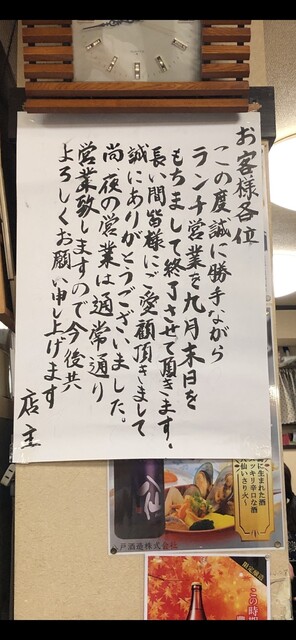 お客様各位
この度誠に勝手ながら
ランチ営業を九月末日を
もちまして終了させて頂きます。
長い間皆様にご愛顧頂きまして
誠にありがとうございました。
尚、夜の営業は通常通り
営業致しますので今後共
よろしくお願い申し上げます
店主
に生まれた酒
ッキリ辛口な酒
仙いさり火～
仙
戸酒造株式会社
限定醸造
この時期